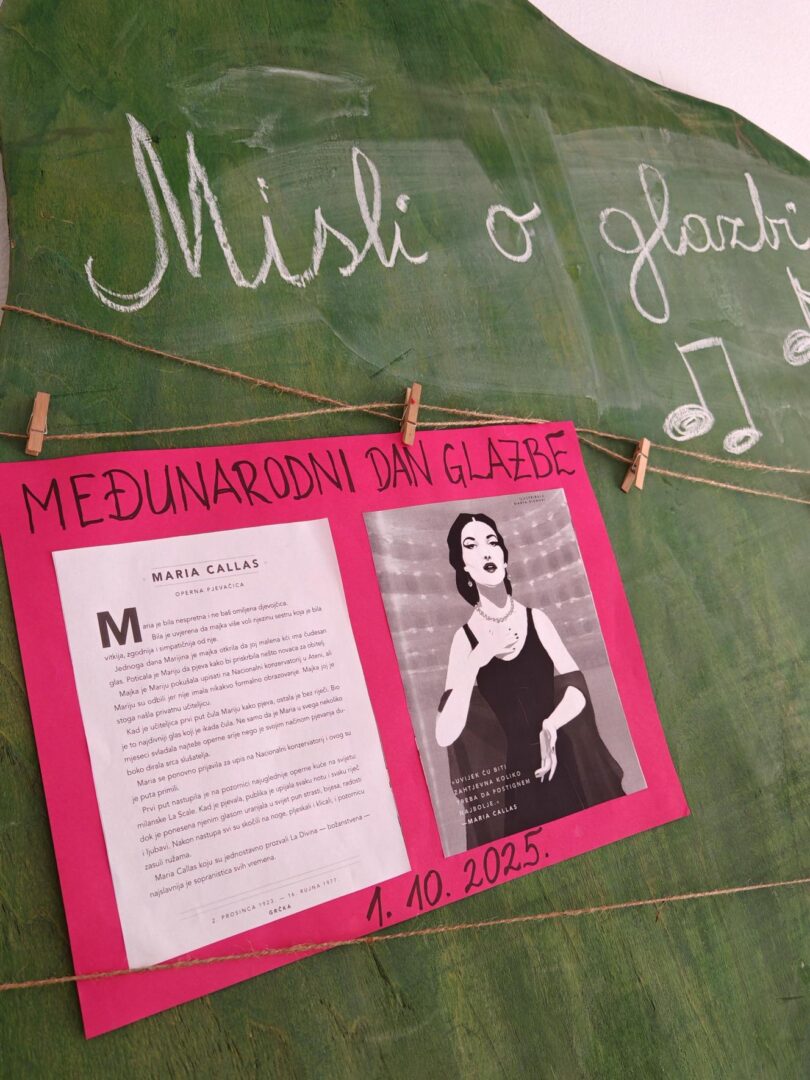 Misli o glazbi
MEĐUNARODNI DAN GLAZBE
MARIA CALLAS
OPERNA PJEVAČICA
Maria je bila nespretna i ne baš omiljena djevojčica.
Bila je uvjerena da majka više voli njezinu sestru koja je bila
vitkija, zgodnija i simpatičnija od nje.
Jednoga dana Marijina je majka otkrila da joj malena kći ima čudesan
glas. Poticala je Mariju da pjeva kako bi priskrbila nešto novaca za obitelj.
Majka je Mariju pokušala upisati na Nacionalni konzervatorij u Ateni, ali
Mariju su odbili jer nije imala nikakvo formalno obrazovanje. Majka joj je
stoga našla privatnu učiteljicu.
Kad je učiteljica prvi put čula Mariju kako pjeva, ostala je bez riječi. Bio
je to najdivniji glas koji je ikada čula. Ne samo da je Maria u svega nekoliko
mjeseci svladala najteže operne arije nego je svojim načinom pjevanja du-
boko dirala srca slušatelja.
Maria se ponovno prijavila za upis na Nacionalni konzervatorij i ovog su
je puta primili.
Prvi put nastupila je na pozornici najuglednije operne kuće na svijetu:
milanske La Scale. Kad je pjevala, publika je upijala svaku notu i svaku riječ
dok je ponesena njenim glasom uranjala u svijet pun strasti, bijesa, radosti
i ljubavi. Nakon nastupa svi su skočili na noge, pljeskali i klicali, i pozornicu
zasuli ružama.
Maria Callas koju su jednostavno prozvali La Divina — božanstvena —
najslavnija je sopranistica svih vremena.
2. PROSINCA 1923. — 16. RUJNA 1977.
GRČKA
ILUSTRIRALA
»UVIJEK ĆU BITI
ZAHTJEVNA KOLIKO
TREBA DA POSTIGNEM
NAJBOLJE.«
—MARIA CALLAS
1. 10. 2025.